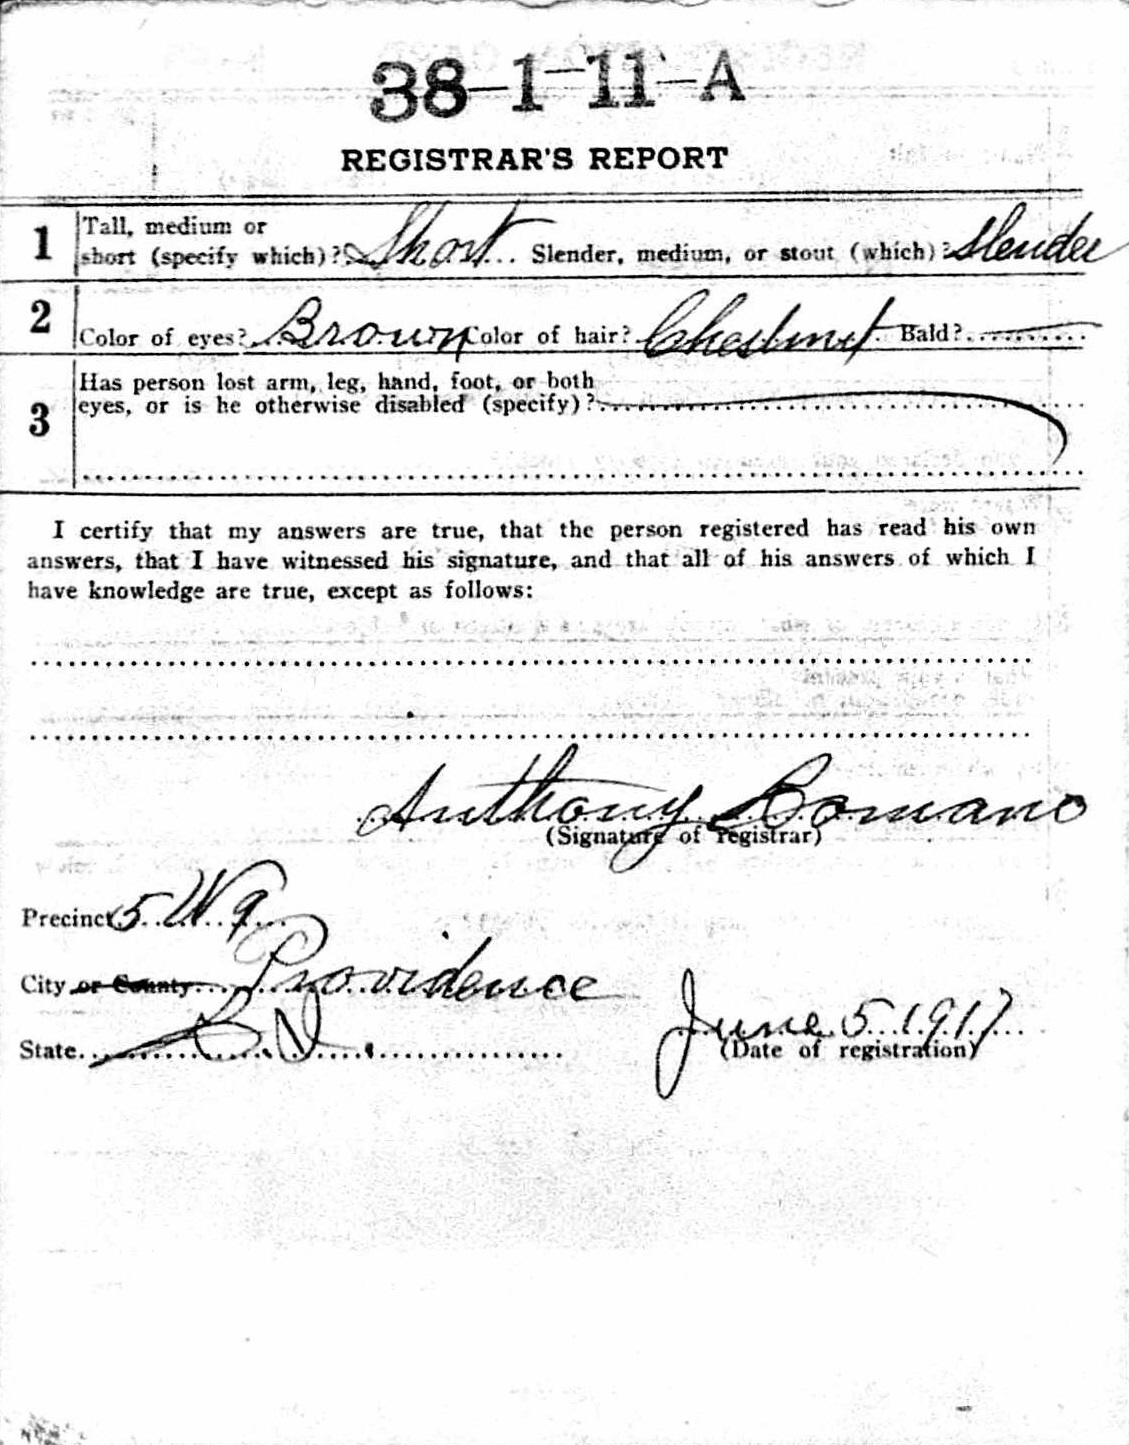 38-1-11-A
REGISTRAR'S REPORT
1 Tall, medium or
short (specify which)? Short Slender, medium, or stout (which)? Slender
2 Color of eyes? Brown Color of hair? Chestnut Bald?
3 Has person lost arm, leg, hand, foot, or both
eyes, or is he otherwise disabled (specify)?
I certify that my answers are true, that the person registered has read his own
answers, that I have witnessed his signature, and that all of his answers of which I
have knowledge are true, except as follows:
Anthony Bomano
(Signature of registrar)
Precinct 5 W 9
City or County Providence
State R.I. June 5 1917
(Date of registration)